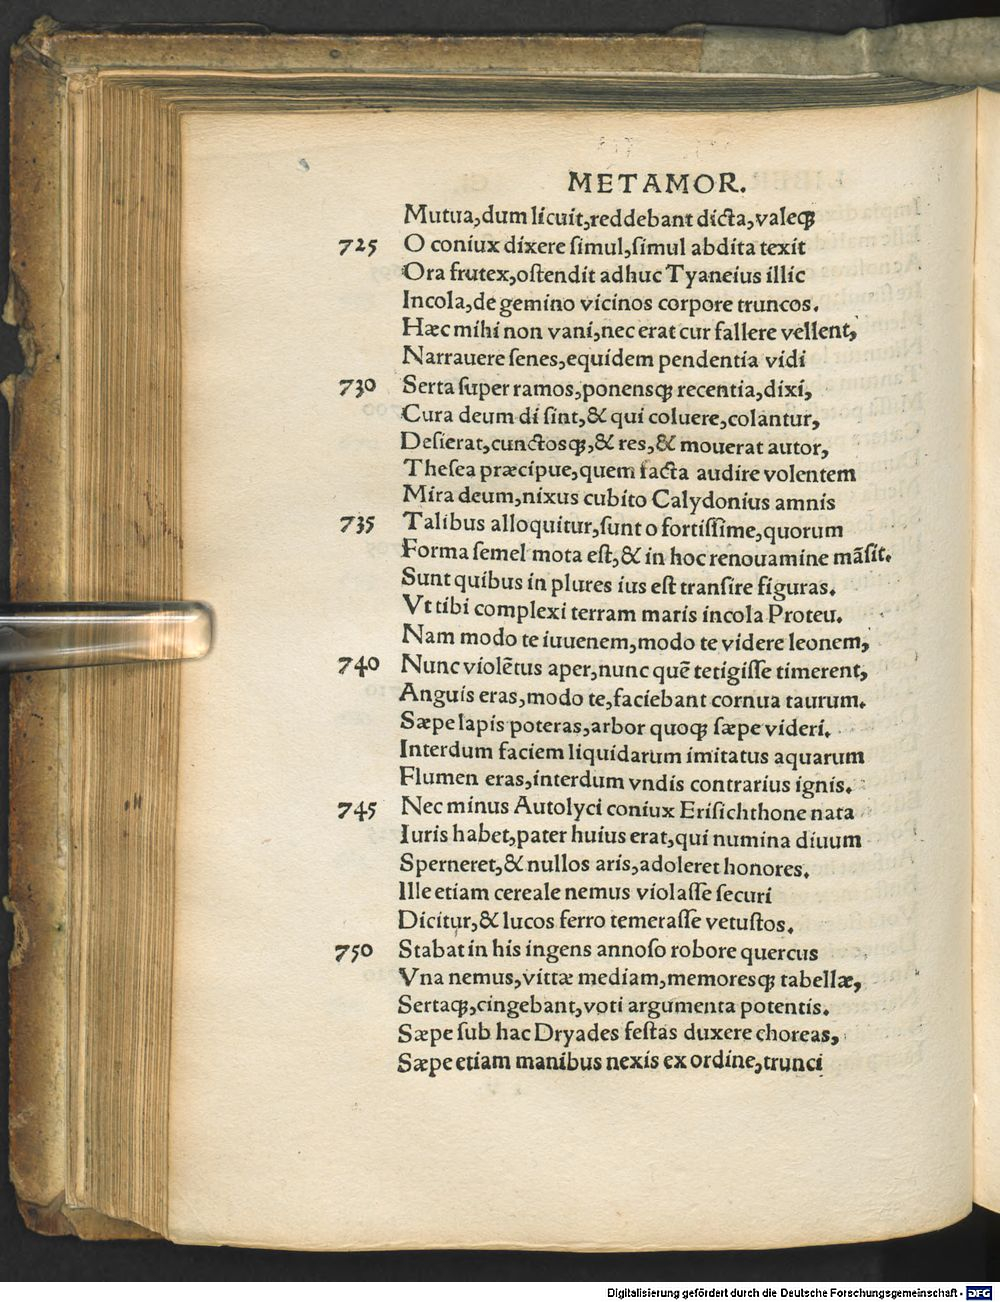 METAMOR.
Mutua,dum licuit,reddebant dicta,valeqꝫ
725 O coniux dixere simul,simul abdita texit
Ora frutex,ostendit adhuc Tyaneius illic
Incola,de gemino vicinos corpore truncos.
Hæc mihi non vani,nec erat cur fallere vellent,
Narrauere senes,equidem pendentia vidi
730 Serta super ramos,ponensqꝫ recentia,dixi,
Cura deum di sint,& qui coluere,colantur,
Desierat,cunctosqꝫ,& res,& mouerat autor,
Thesea præcipue,quem facta audire volentem
Mira deum,nixus cubito Calydonius amnis
735 Talibus alloquitur,sunt o fortissime,quorum
Forma semel mota est,& in hoc renouamine mãsit.
Sunt quibus in plures ius est transire figuras.
Vt tibi complexi terram maris incola Proteu.
Nam modo te iuuenem,modo te videre leonem,
740 Nunc violẽtus aper,nunc quẽ tetigisse timerent,
Anguis eras,modo te,faciebant cornua taurum.
Sæpe lapis poteras,arbor quoqꝫ sæpe videri.
Interdum faciem liquidarum imitatus aquarum
Flumen eras,interdum vndis contrarius ignis.
745 Nec minus Autolyci coniux Erisichthone nata
Iuris habet,pater huius erat,qui numina diuum
Sperneret,& nullos aris,adoleret honores.
Ille etiam cereale nemus violasse securi
Dicitur,& lucos ferro temerasse vetustos.
750 Stabat in his ingens annoso robore quercus
Vna nemus,vittæ mediam,memoresqꝫ tabellæ,
Sertaqꝫ,cingebant,voti argumenta potentis.
Sæpe sub hac Dryades festas duxere choreas,
Sæpe etiam manibus nexis ex ordine,trunci
Digitalisierung gefördert durch die Deutsche Forschungsgemeinschaft - DFG